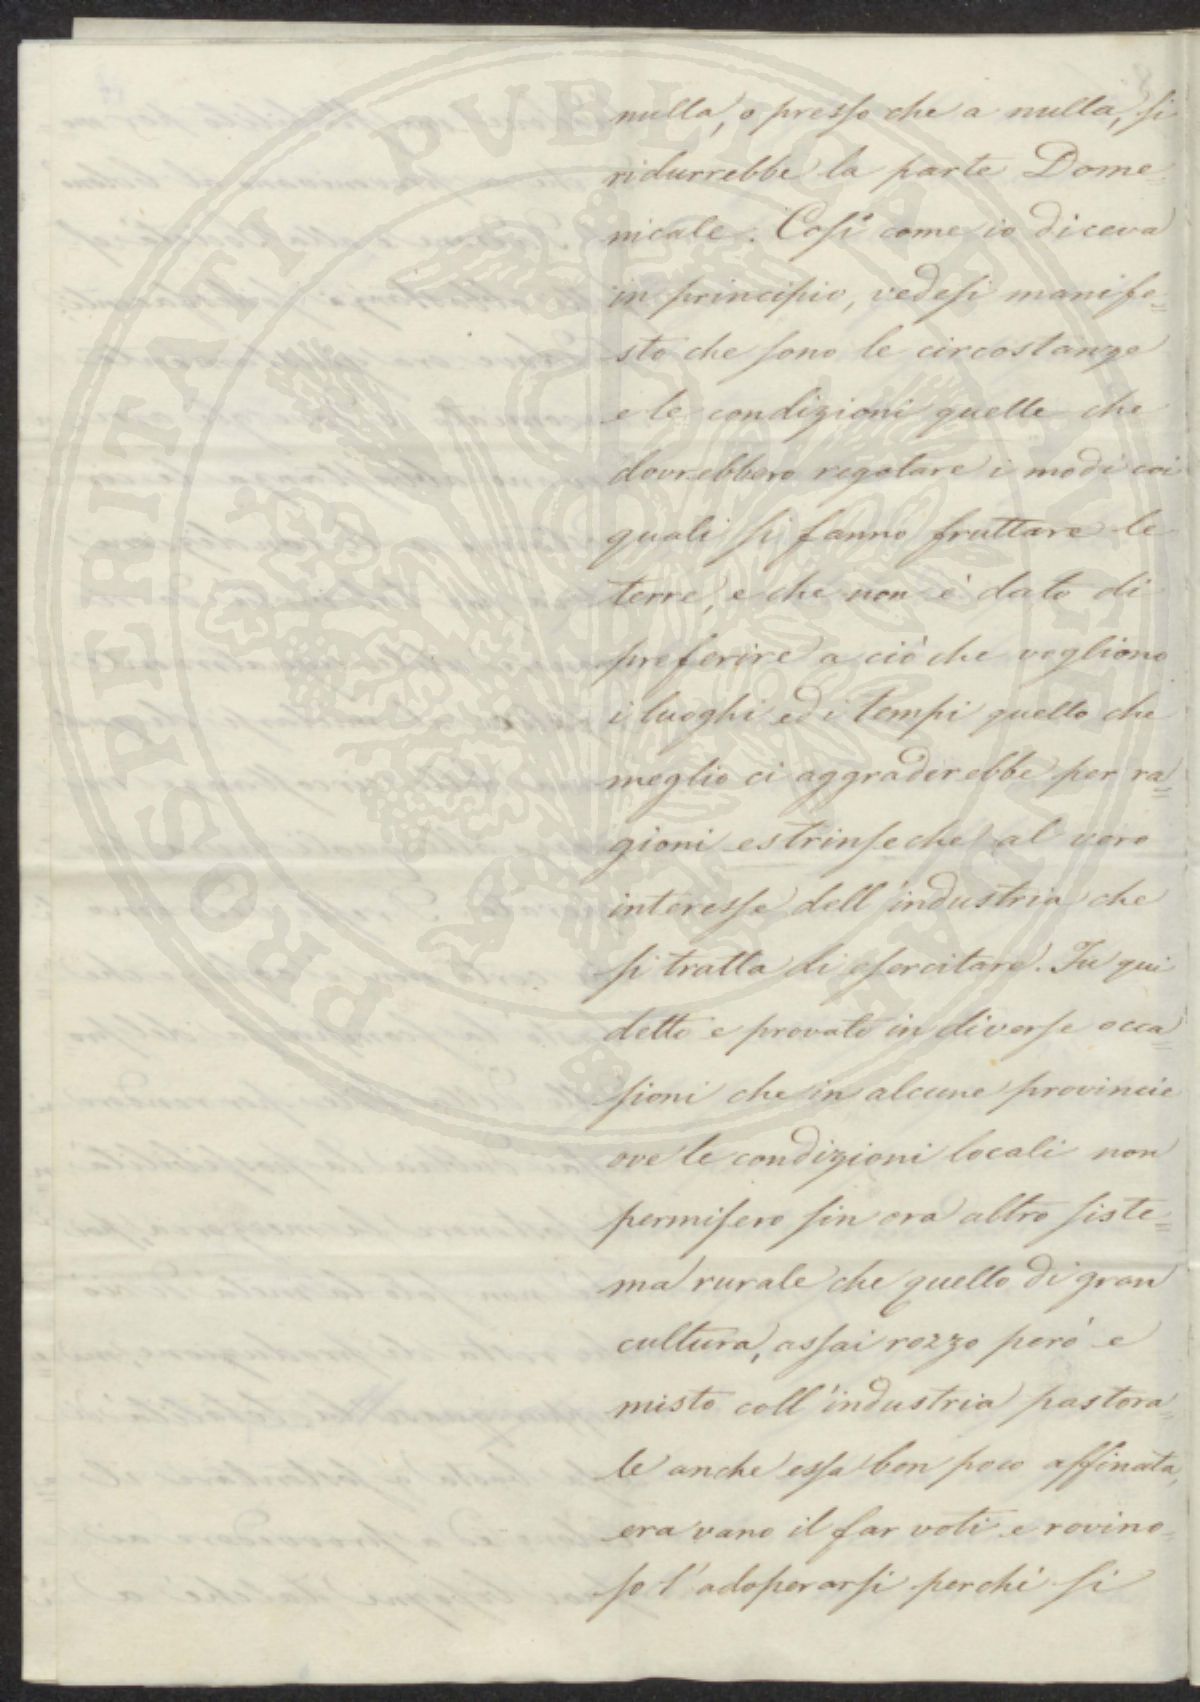 nulla, o presso che a nulla, si
ridurrebbe la parte Dome-
nicale. Così come io diceva
in principio, vedesi manife=
sto che sono le circostanze
e le condizioni quelle che
dovrebbero regolare i modi coi
quali si fanno fruttare le
terre, e che non è dato di
preferire a ciò che vogliono
i luoghi ed i tempi quello che
meglio ci aggraderebbe per ra=
gioni estrinseche al vero
interesse dell'industria che
si tratta di esercitare. Fu qui
detto e provato in diverse occa=
sioni che in alcune provincie
ove le condizioni locali non
permisero sin ora altro siste=
ma rurale che quello di gran
cultura, assai rozzo però e
misto coll'industria pastora=
le anche essa ben poco affinata,
era vano il far voti e rovino=
so l'adoperarsi perchè si
PROSPERITATI PVBLICAE AVGENDAE